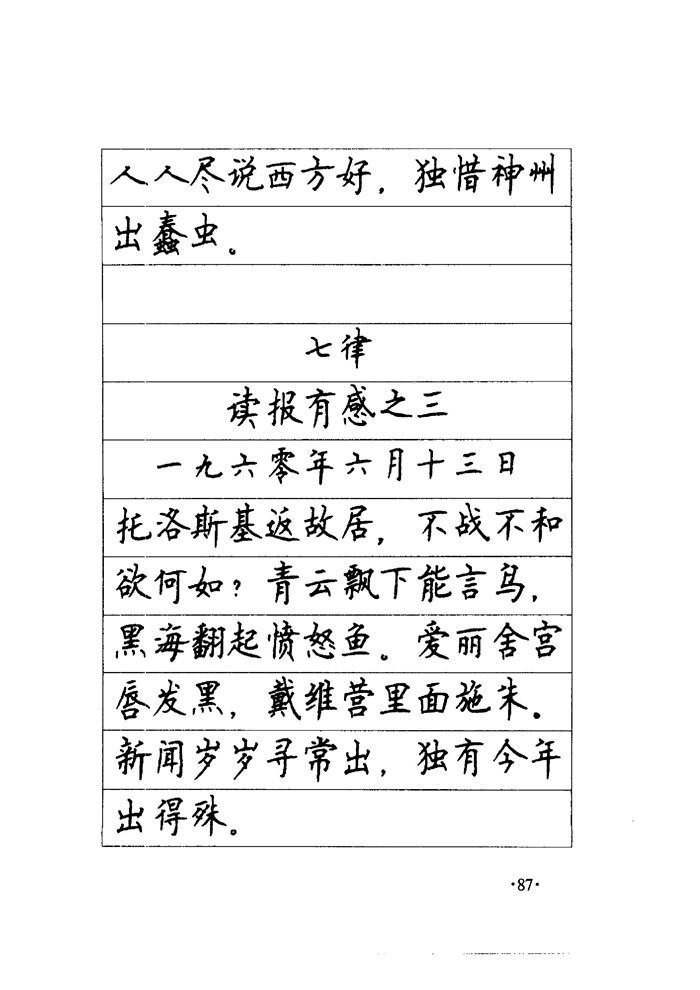 人人尽说西方好，独惜神州
出蠢虫。
七律
读报有感之三
一九六零年六月十三日
托洛斯基返故居，不战不和
欲何如？青云飘下能言鸟，
黑海翻起愤怒鱼。爱丽舍宫
唇发黑，戴维营里面施朱。
新闻岁岁寻常出，独有今年
出得殊。
·87·